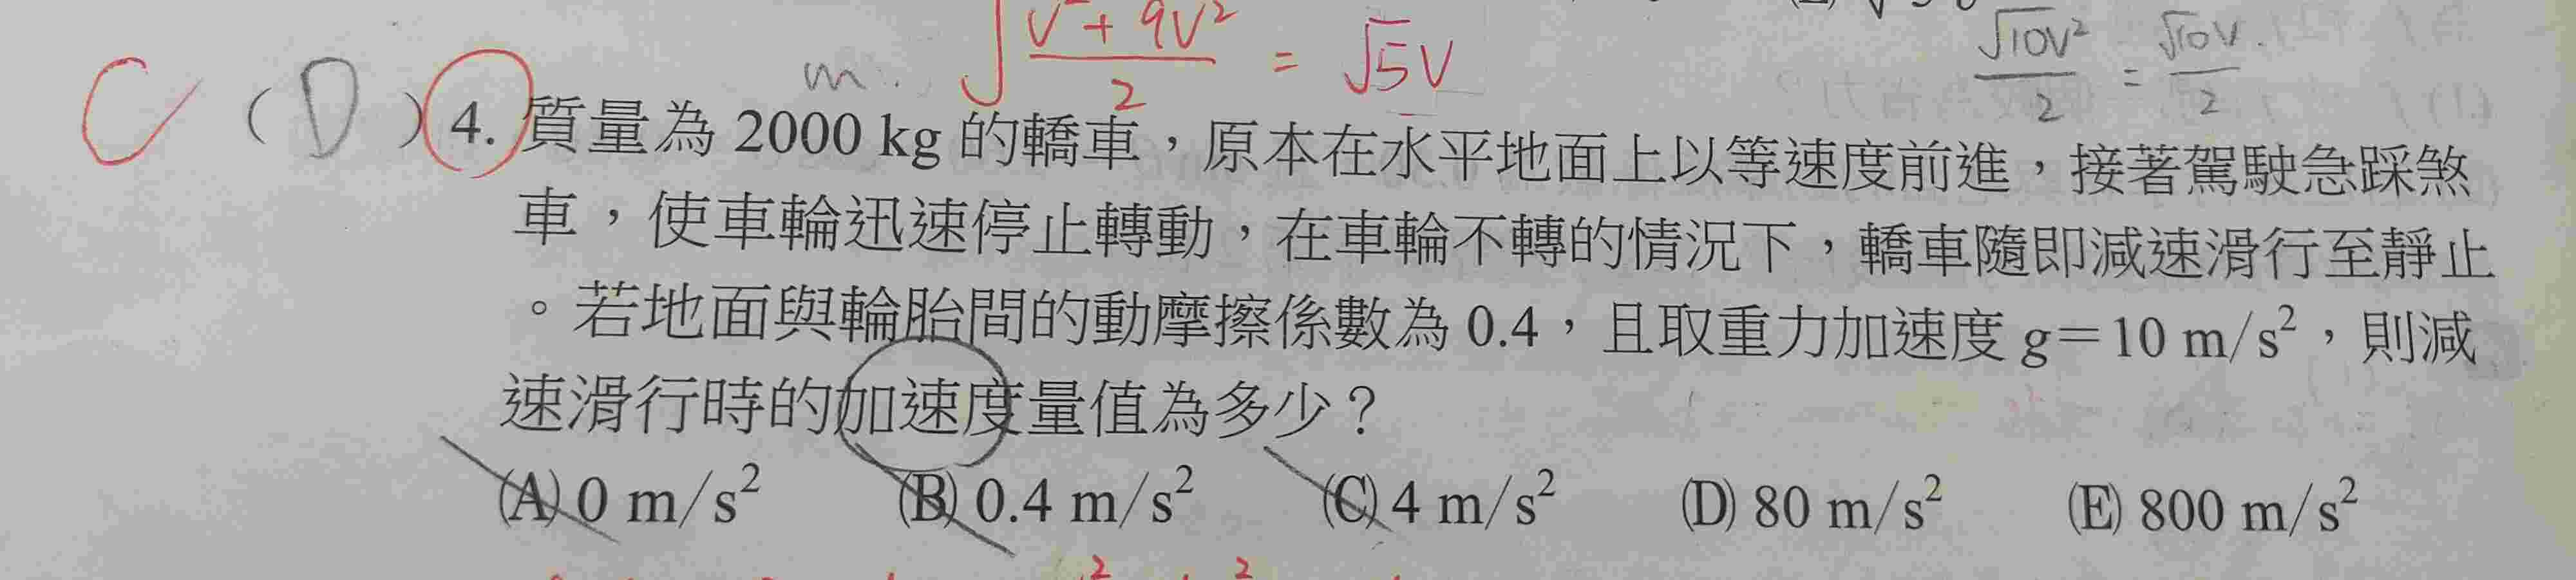 √(V²+9V²)/2 = √5V
√10V²/2 = √10V/2
m
C (D) 4. 質量為 2000 kg 的轎車，原本在水平地面上以等速度前進，接著駕駛急踩煞
車，使車輪迅速停止轉動，在車輪不轉的情況下，轎車隨即減速滑行至靜止
。若地面與輪胎間的動摩擦係數為 0.4，且取重力加速度 g＝10 m/s²，則減
速滑行時的加速度量值為多少？
(A) 0 m/s² (B) 0.4 m/s² (C) 4 m/s² (D) 80 m/s² (E) 800 m/s²